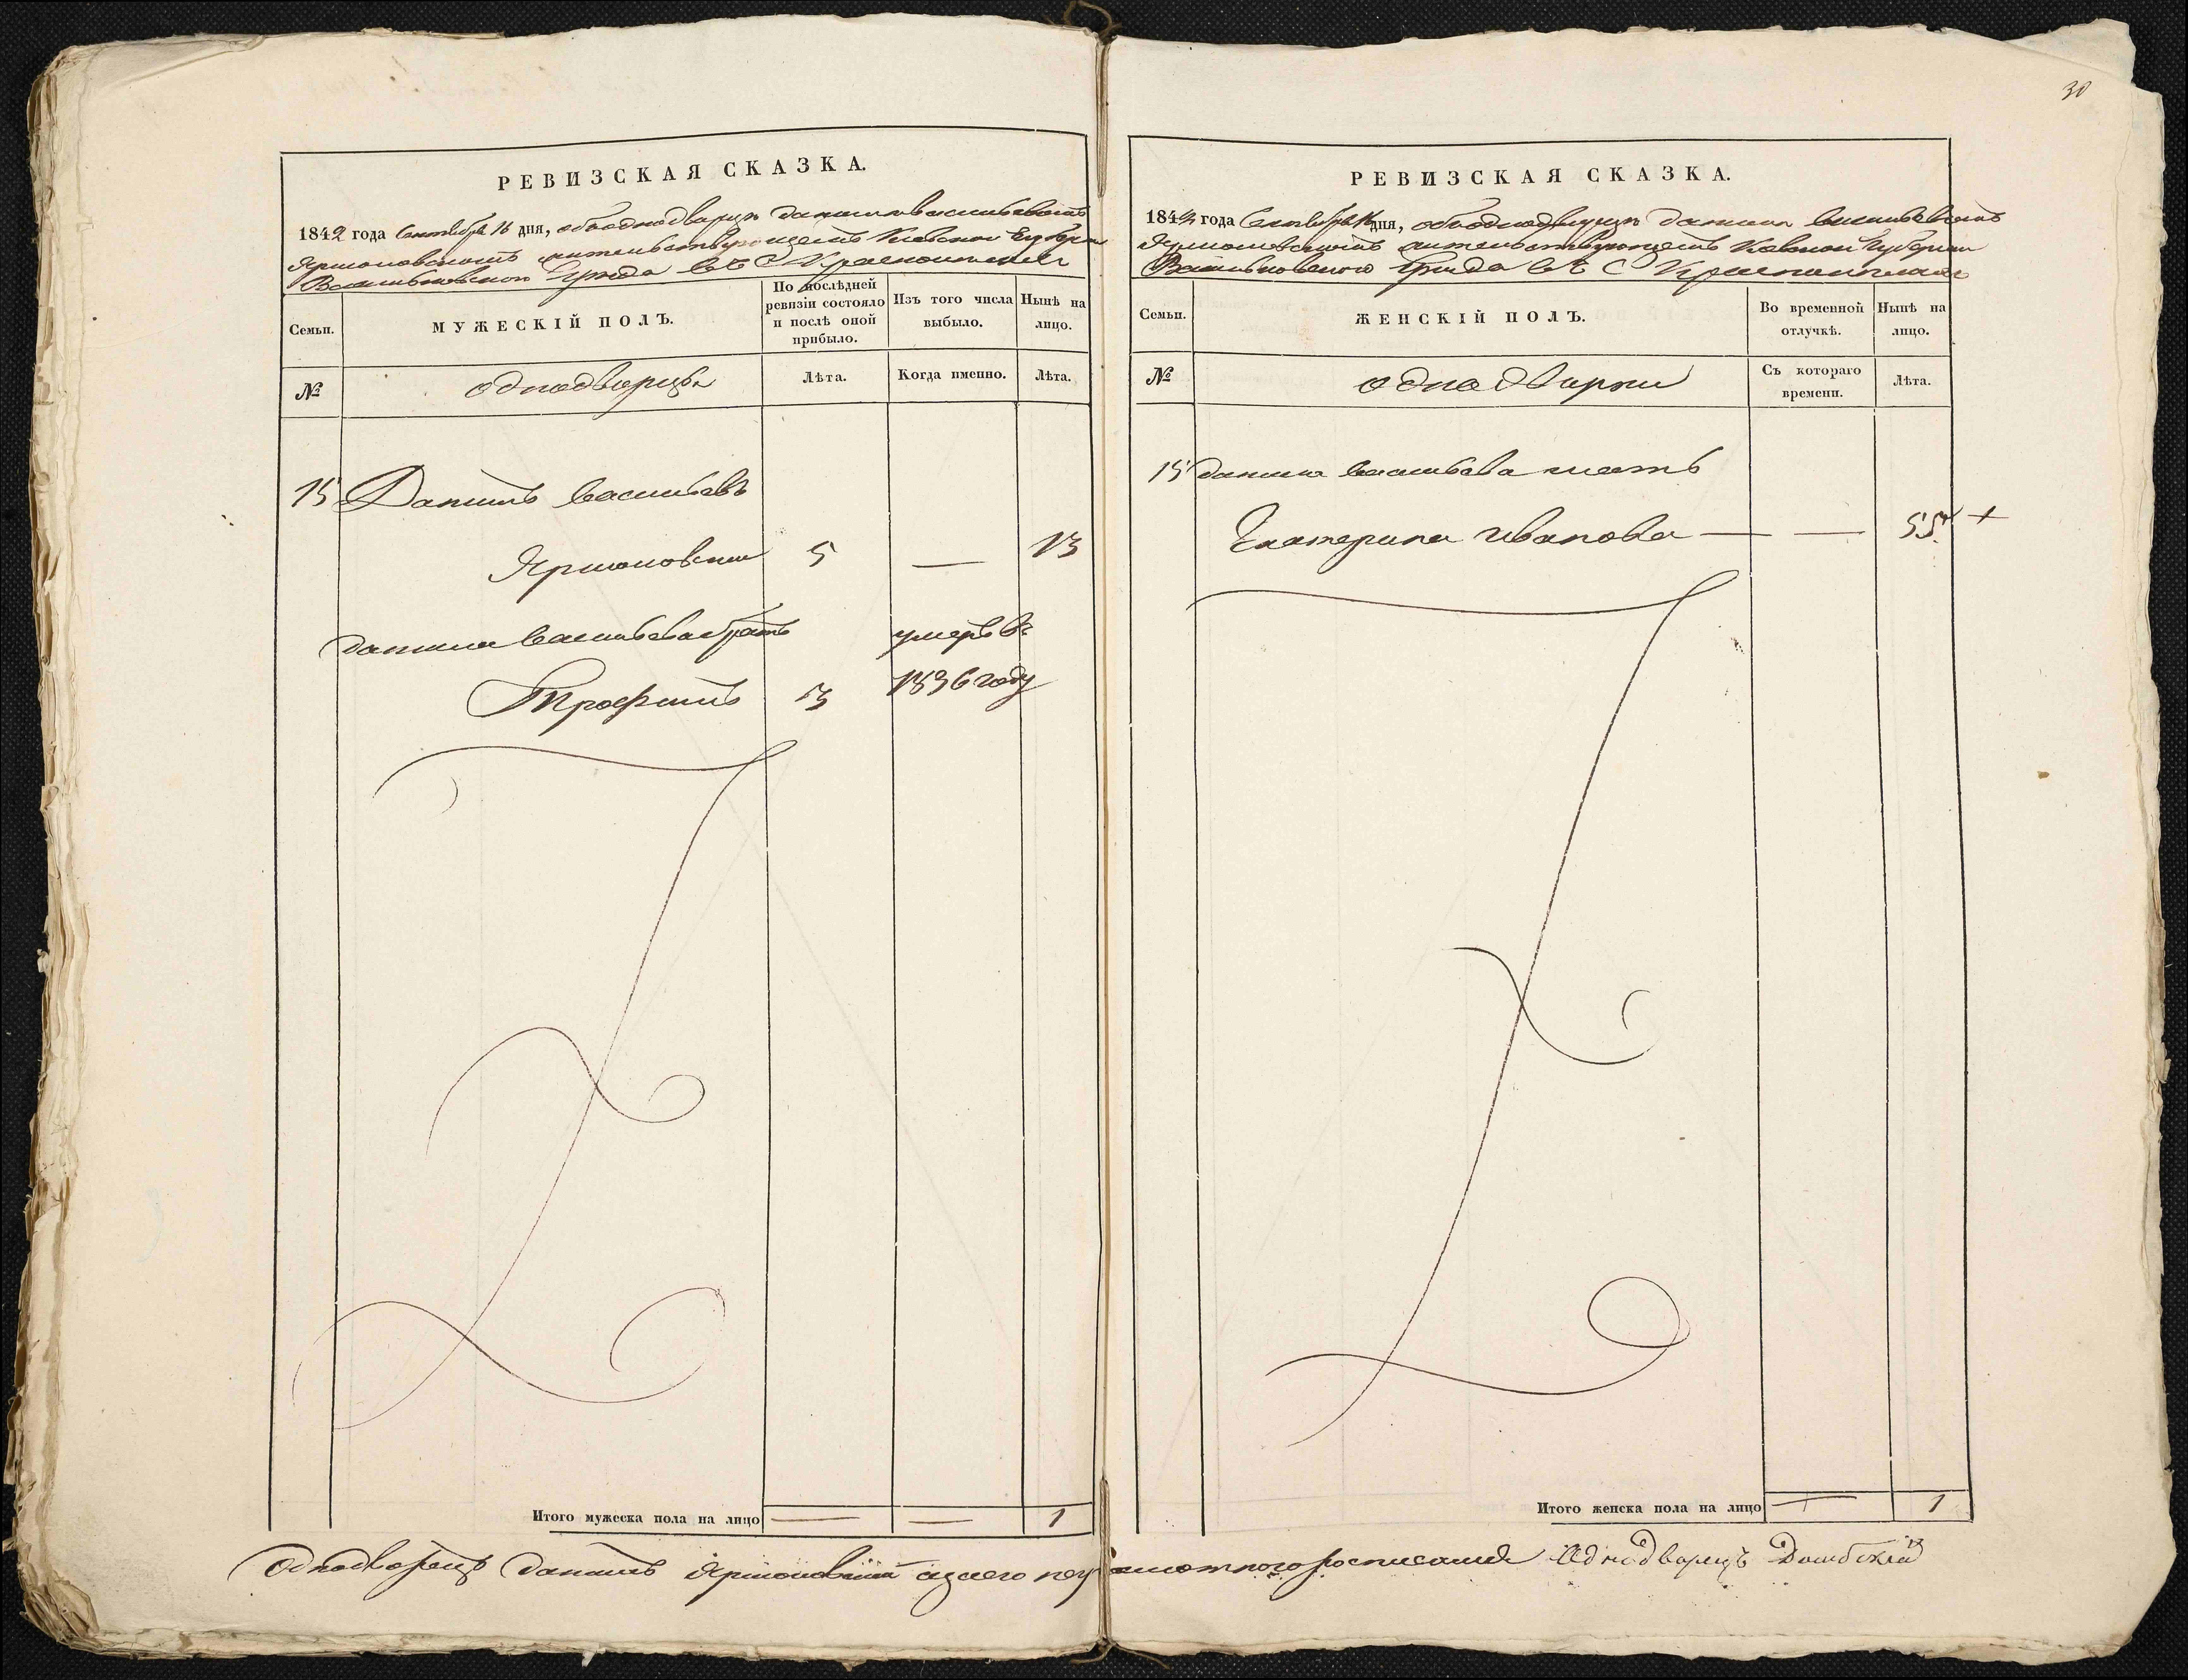 30
РЕВИЗСКАЯ СКАЗКА.
1842 года Сентября 16 дня, объ однодворце Даниле Васильевомъ
Ярмоловскомъ жительствующемъ Киевской Губернии
Васильковского Уезда въ С
Семьи.
МУЖЕСКІЙ ПОЛЪ.
По послѣдней ревизіи состояло и послѣ оной прибыло.
Изъ того числа выбыло.
Нынѣ на лицо.
№
однодворцы
Лѣта.
Когда именно.
Лѣта.
15 Данилъ Васильевъ
Ярмоловский 5 — 13
Данила Васильева братъ умеръ въ
Трофимъ 3 1836 году
Итого мужеска пола на лицо — — 1
РЕВИЗСКАЯ СКАЗКА.
1842 года Сентября 16 дня, объ однодворце Даниле Васильевомъ
Ярмоловскомъ жительствующемъ Киевской Губернии
Васильковского Уезда въ С
Семьи.
ЖЕНСКІЙ ПОЛЪ.
Во временной отлучкѣ.
Нынѣ на лицо.
№
однодворки
Съ котораго времени.
Лѣта.
15 Данила Васильева мать
Екатерина Иванова — — 55 +
Итого женска пола на лицо — 1
Однодворецъ Данилъ Ярмоловский а за него неграмотного росписался Однодворецъ Домбскій